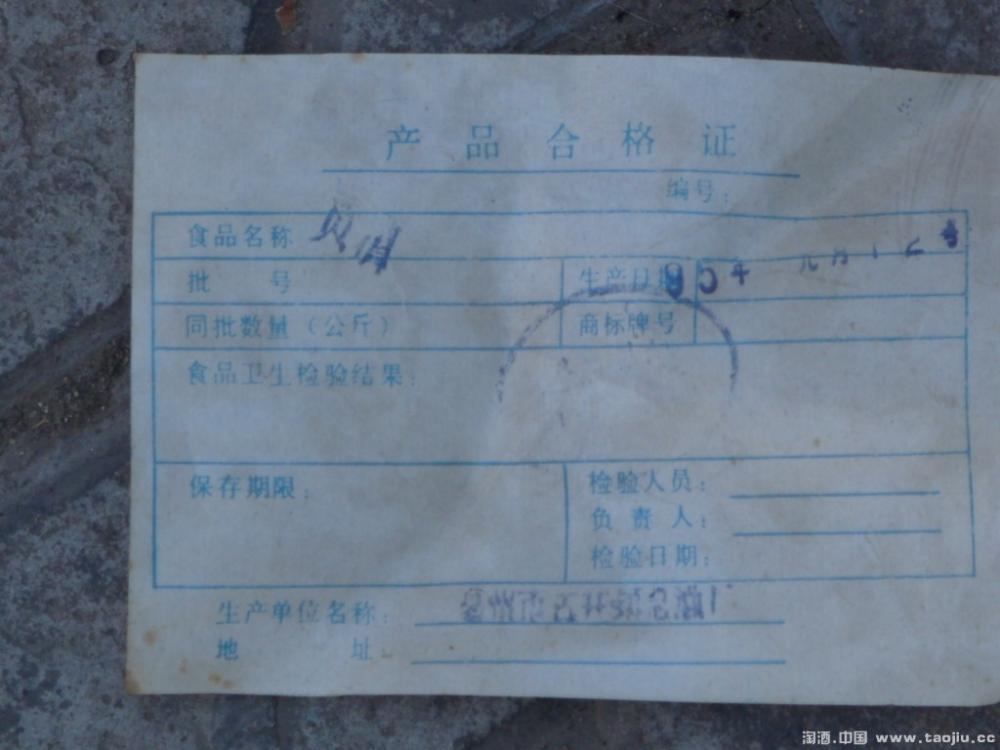 产品合格证
编号：
食品名称
批号 生产日期 90年 元月12号
同批数量（公斤） 商标牌号
食品卫生检验结果：
保存期限： 检验人员：
负责人：
检验日期：
生产单位名称： 亳州市古井镇 酒厂
地址
淘酒.中国 www.taojiu.cc